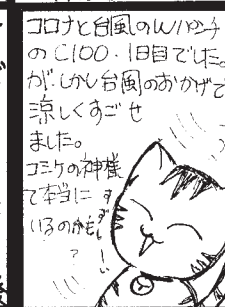 コロナと台風のWパンチ
のC100・1日目でした。
が、しかし台風のおかげで
涼しくすごせ
ました。
コミケの神様
て本当に
いるのかも
?
すずしー!